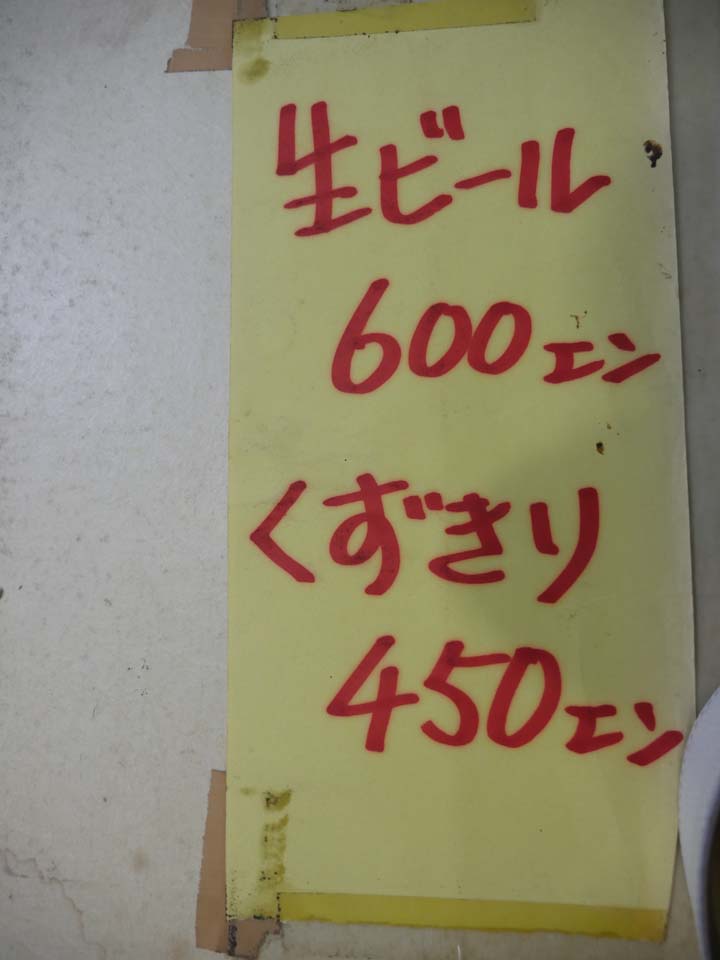 生ビール
600エン
くずきり
450エン